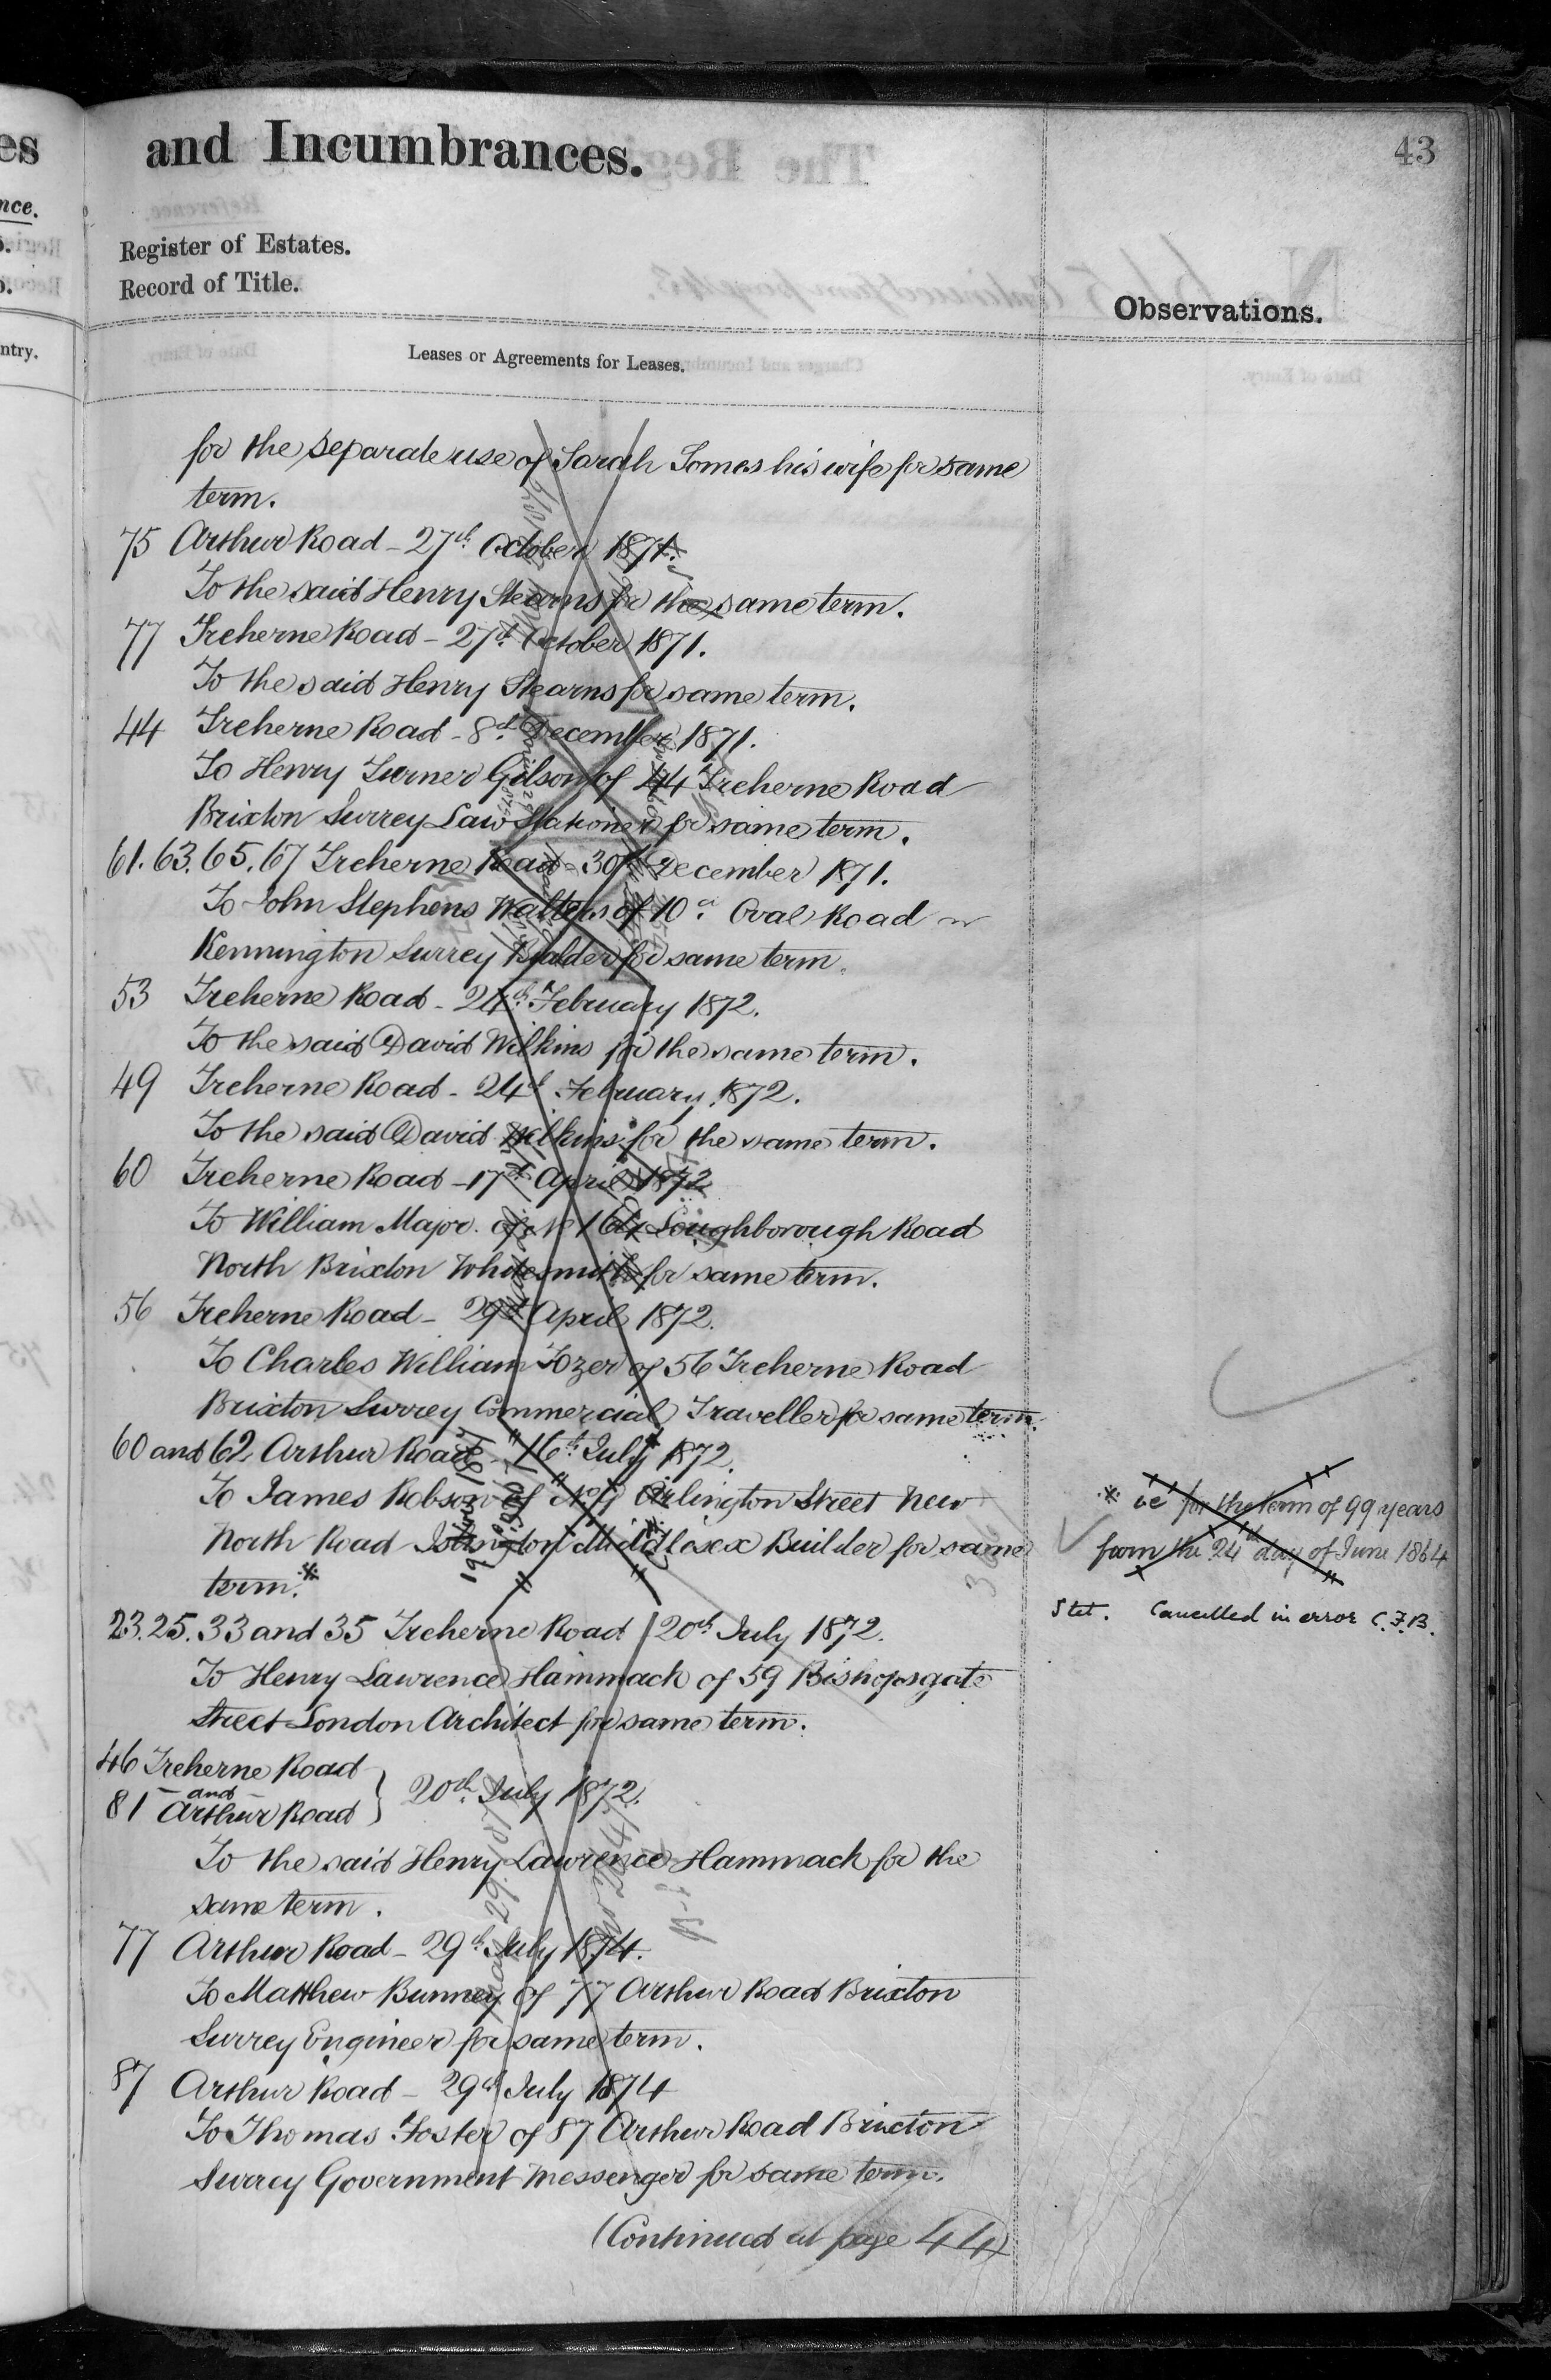 es
and Incumbrances.
43
nce.
Register of Estates.
Record of Title.
Observations.
ntry.
Leases or Agreements for Leases.
for the separate use of Sarah Tomes his wife for same
term.
75 Arthur Road - 27th October 1871.
To the said Henry Stearns for the same term.
77 Treherne Road - 27th October 1871.
To the said Henry Stearns for same term.
44 Treherne Road - 8th December 1871.
To Henry Turner Gilson of 44 Treherne Road
Brixton Surrey Law Stationer for same term.
61. 63. 65. 67 Treherne Road - 30th December 1871.
To John Stephens Walters of 10a Oval Road
Kennington Surrey Builder for same term.
53 Treherne Road - 24th February 1872.
To the said David Wilkins for the same term.
49 Treherne Road - 24th February 1872.
To the said David Wilkins for the same term.
60 Treherne Road - 17th April 1872
To William Major of No 164 Loughborough Road
North Brixton Whitesmith for same term.
56 Treherne Road - 29th April 1872.
To Charles William Tozer of 56 Treherne Road
Brixton Surrey Commercial Traveller for same term.
60 and 62 Arthur Road - 16th July 1872.
To James Robson of No Arlington Street New
North Road Islington Middlesex Builder for same
term.
ie for the term of 99 years
from the 24th day of June 1864
Stet. Cancelled in error C.F.B.
23. 25. 33 and 35 Treherne Road 20th July 1872.
To Henry Lawrence Hammack of 59 Bishopsgate
Street London Architect for same term.
46 Treherne Road
and
81 Arthur Road } 20th July 1872.
To the said Henry Lawrence Hammack for the
same term.
77 Arthur Road - 29th July 1874.
To Matthew Bunney of 77 Arthur Road Brixton
Surrey Engineer for same term.
87 Arthur Road - 29th July 1874
To Thomas Foster of 87 Arthur Road Brixton
Surrey Government Messenger for same term.
(Continued at page 44)